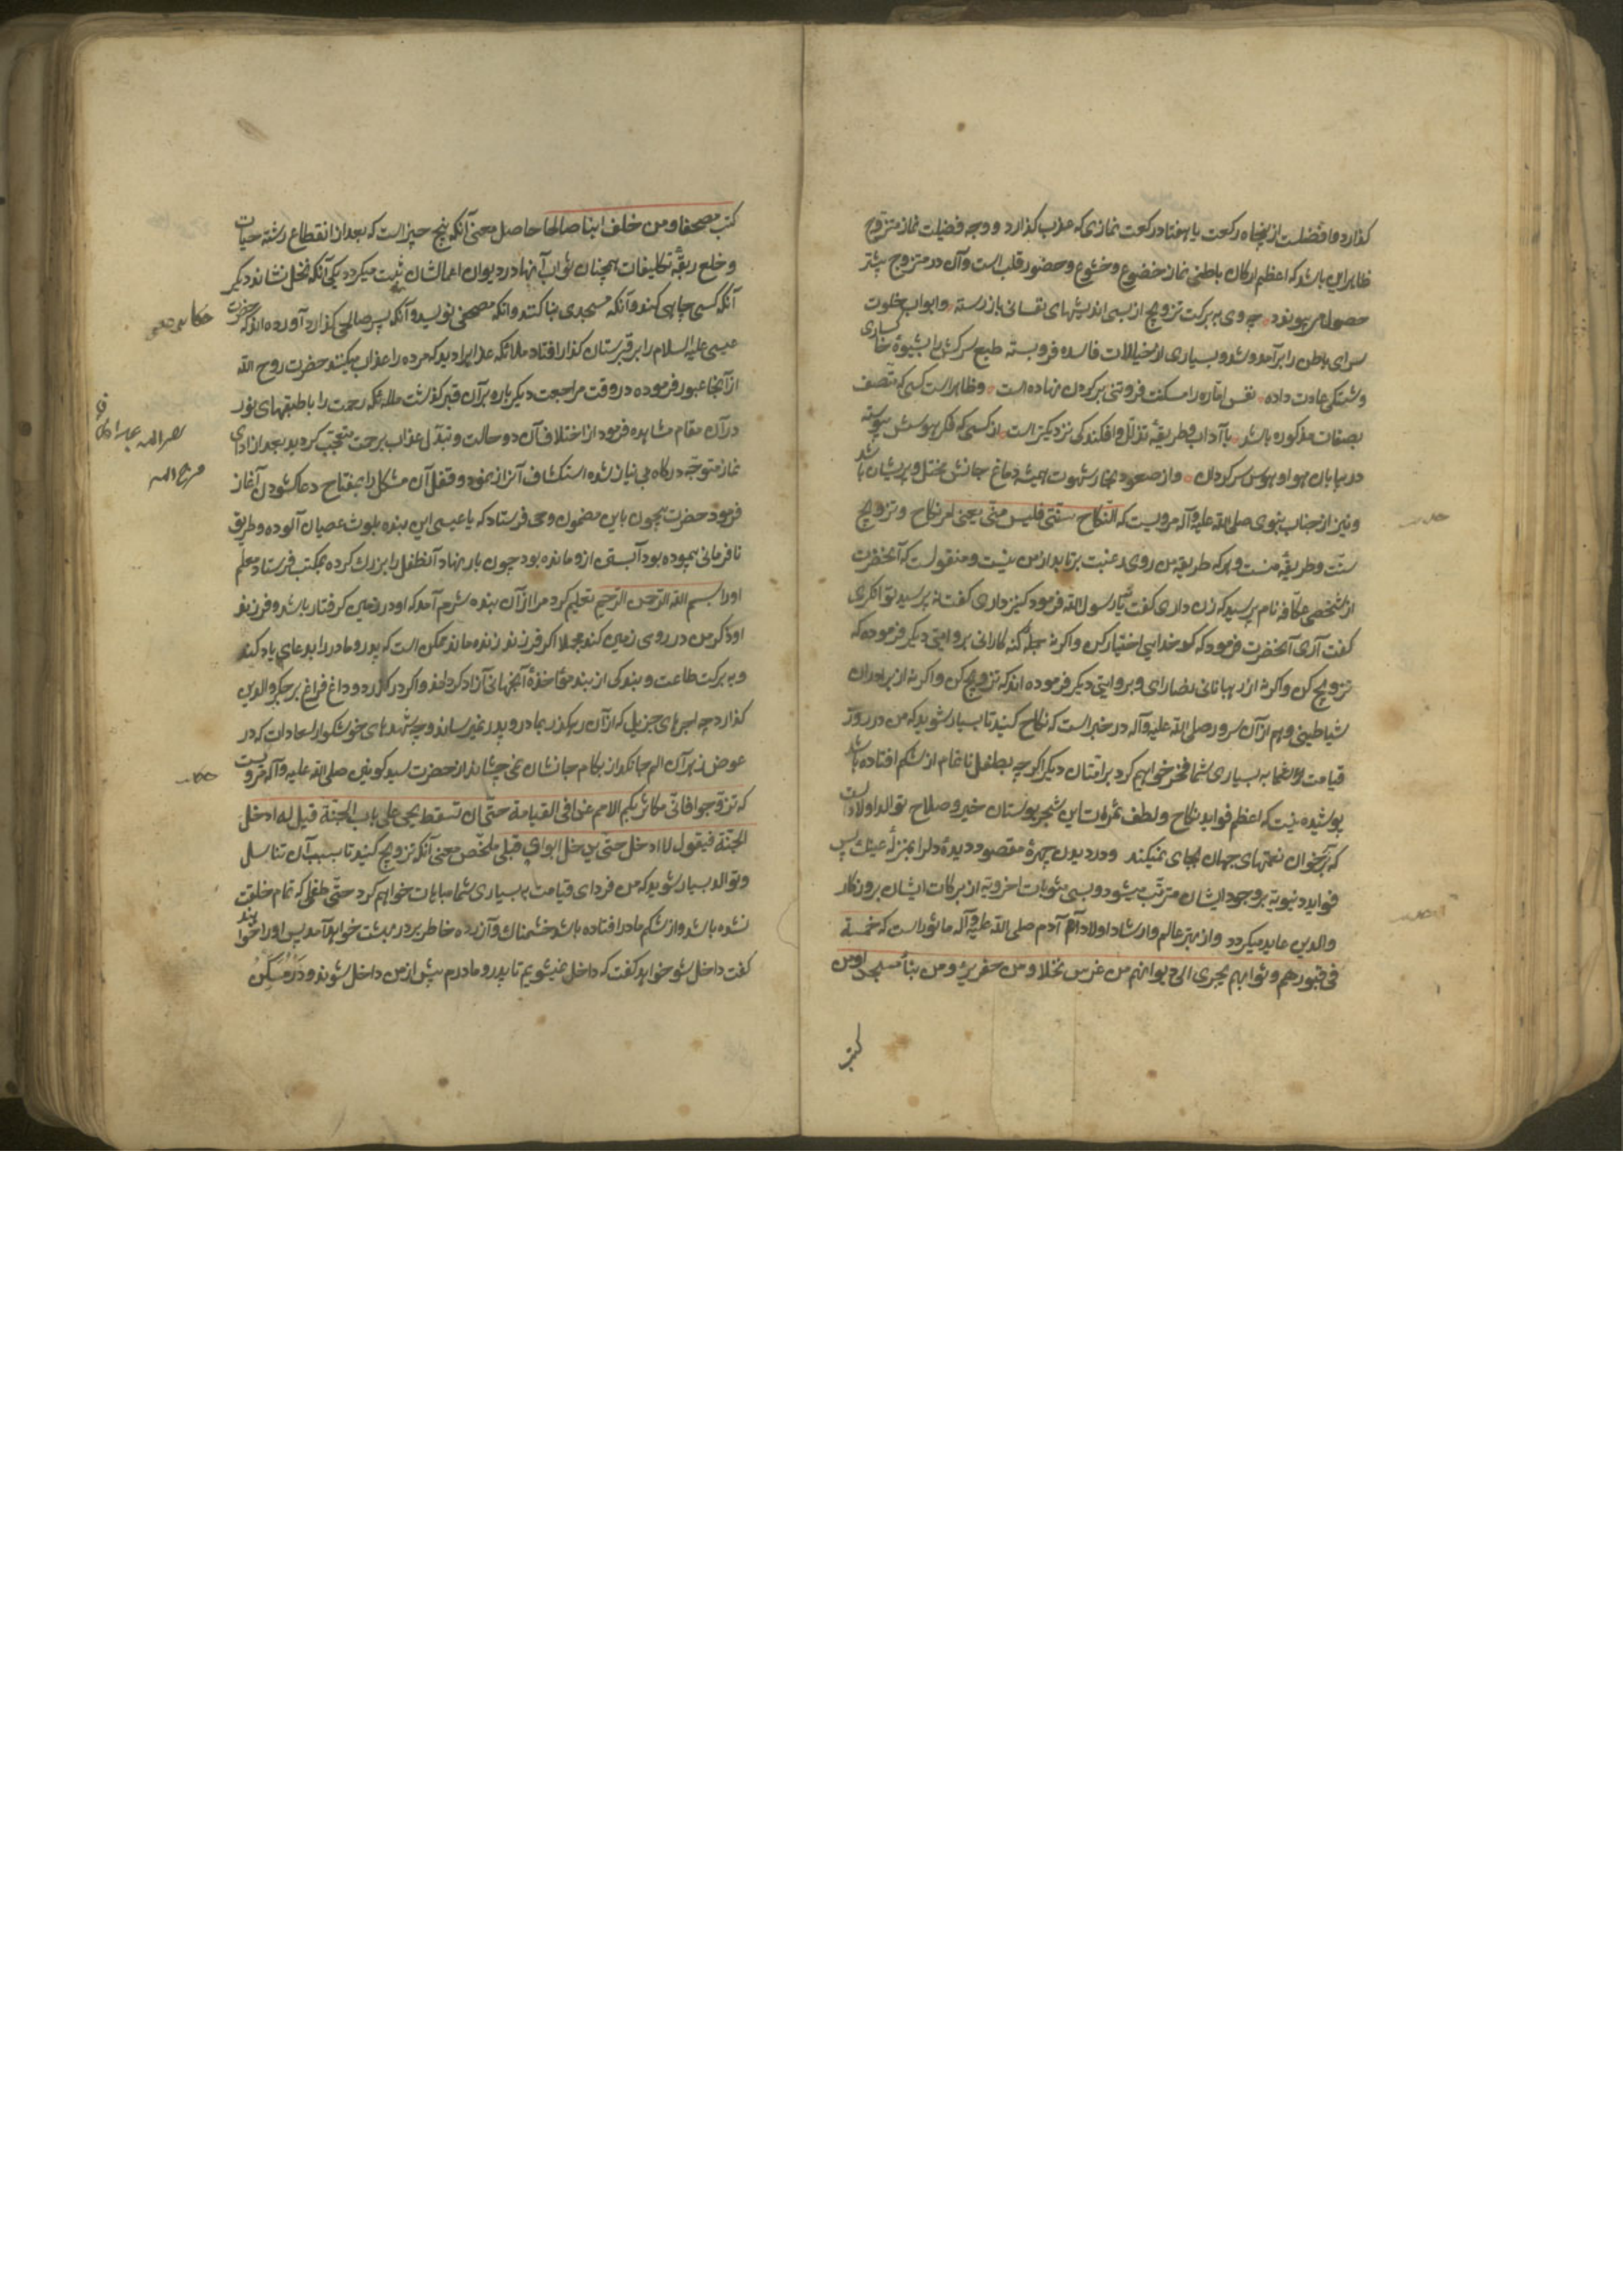 گذارد و افضلست از پنجاه رکعت یا هفتاد رکعت نمازی که عزب گذارد و وجه فضیلت نماز متزوج
ظاهرا این باشد که اعظم ارکان باطنی نماز خضوع و خشوع و حضور قلب است و آن در متزوج بیشتر
حصول می پیوندد چه وی به برکت تزویج از بسی اندیشهای نفسانی باز رسته و ابواب خلوت
سرای باطن را بر آمد و شد و بسیاری از خیالات فاسده فرو بسته طبع سرکش را بشیوهٔ خاکساری
و شکستگی عادت داده نفس اماره را مسکنت فروتنی بر گردن نهاده است و ظاهر است کسی که متصف
بصفات مذکوره باشد با آداب و طریقهٔ تذلل و افکندگی نزدیکتر است از کسی که فکر هوسش پیوسته
در بیابان هوا و هوس سرگردان و از صعود بخار شهوت همیشه دماغ جانش مختل و پریشان باشد
و نیز از جناب نبوی صلی الله علیه و آله مرویست که النکاح سنتی فلیس منی یعنی امر نکاح و تزویج
سنت و طریقهٔ منست و هر که طریقه من روی رغبت برتابد از من نیست و منقولست که آنحضرت
از شخصی عکافه نام پرسید که زن داری گفت نه یا رسول الله فرمود کنیز داری گفت نه پرسید توانگری
گفت آری آنحضرت فرمود که کدخدایی اختیار کن و اگر نه از جمله گنه کارانی بروایتی دیگر فرموده که
تزویج کن و اگر نه از رهبانان نصارایی و بروایتی دیگر فرموده اند که تزویج کن و اگر نه از برادران
شیاطینی و هم از آن سرور صلی الله علیه و آله در خبر است که نکاح کنید تا بسیار شوید که من در روز
قیامت به بسیاری شما فخر خواهم کرد بر امتان دیگر اگر چه بطفل ناتمام از شکم افتاده باشد
پوشیده نیست که اعظم فواید نکاح و لطف ثمرات این شجر بوستان خیر و صلاح توالد اولاد است
که بر خوان نعمتهای جهان بجای نمکند و در دیدن چهرهٔ مقصود دیدهٔ دلرا بمنزلهٔ عینک پس
فواید دنیویه بر وجود ایشان مترتب میشود و بسی مثوبات اخرویه از برکات ایشان بروزگار
والدین عاید میگردد و از بهتر عالم و ارشاد اولاد آدم صلی الله علیه و آله ماثور است که خمسة
فی قبورهم و ثوابهم یجری الی دیوانهم من غرس نخلا و من حفر بئرا و من بنا مسجدا و من
کتب
کتب مصحفا و من خلف ابنا صالحا حاصل معنی آنکه پنج چیز است که بعد از انقطاع رشتهٔ حیات
و خلع ربقهٔ تکلیفات همچنان ثواب آنها در دیوان اعمالشان ثبت میگردد یکی آنکه نخل نشاند دیگر
آنکه کسی چاهی کند و آنکه مسجدی بنا کند و آنکه مصحفی نویسد و آنکه پسر صالحی گذارد آورده اند که حضرت
عیسی علیه السلام را بر قبرستان گذار افتاد ملائکه عذاب را دید که مرده را عذاب میکنند حضرت روح الله
از آنجا عبور فرموده در وقت مراجعت دیگر باره بر آن قبر گذشت ملائکه رحمت را با طبقهای نور
در آن مقام مشاهده فرمود از اختلاف آن دو حالت و تبدل عذاب برحمت متعجب گردید بعد از ادای
نماز متوجه درگاه بی نیاز شده استکشاف آن راز نمود و قفل آن مشکل را بمفتاح دعا گشودن آغاز
فرمود حضرت بیچون باین مضمون وحی فرستاد که یا عیسی این بنده بلوث عصیان آلوده و طریق
نافرمانی پیموده بود آبستنی ازو مانده بود چون بار نهاد آن طفل را بزرگ کرده بمکتب فرستاد معلم
اورا بسم الله الرحمن الرحیم تعلیم کرد مرا از آن بنده شرم آمد که او در زمین گرفتار باشد و فرزند
او ذکر من در روی زمین کند مجملا اگر فرزند زنده ماند ممکن است که پدر و مادر را بدعای یاد کند
و به برکت طاعت و بندگی از بند مؤاخذهٔ آنجهانی آزاد گرداند و اگر در گذرد و داغ فراغ بر جگر والدین
گذارد چه اجرهای جزیل که از آن رهگذر بمادر و پدر نمیرساند و چه شهدهای خوشگوار سعادات که در
عوض زهر آن الم جانگداز بکام جانشان نمی چشاند از حضرت سید کونین صلی الله علیه و آله مرویست
که تزوجوا فانی مکاثر بکم الامم غدا فی القیامة حتی ان السقط یجی علی باب الجنة قیل له ادخل
الجنة فیقول لا ادخل حتی یدخل ابوای قبلی ملخص معنی آنکه تزویج کنید تا بسبب آن تناسل
و توالد بسیار شوید که من فردای قیامت به بسیاری شما مباهات خواهم کرد حتی طفلی که تمام خلقت
نشده باشد و از شکم مادر افتاده باشد خشمناک و آزرده خاطر بر در بهشت خواهد آمد پس اورا خواهند
گفت داخل شو خواهد گفت که داخل نمیشویم تا پدر و مادرم پیش از من داخل شوند و در مسکن